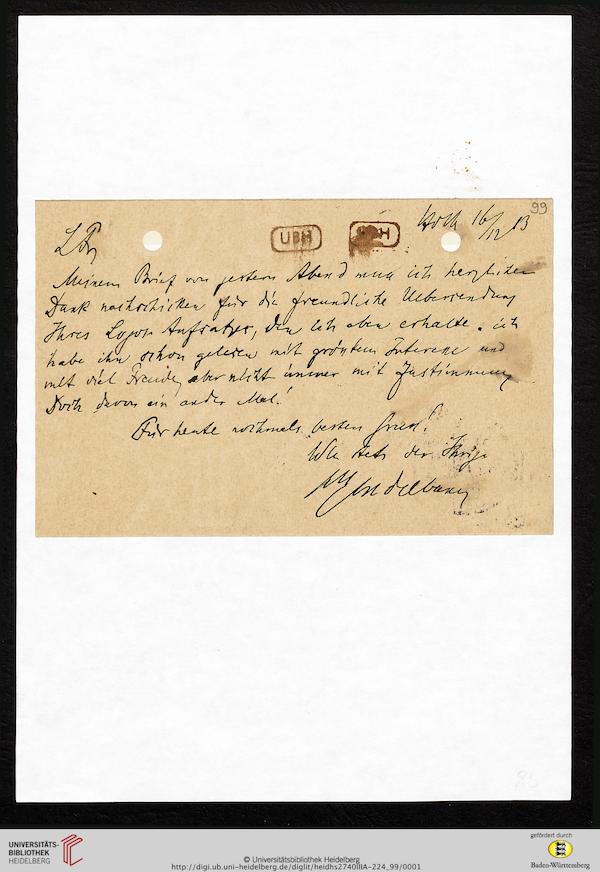 99
16/12 13
UBH
UBH
L Fr
Meinem Brief von gestern Abend muss ich herzlichen
Dank nachschicken für die freundliche Uebersendung
Ihres Logos Aufsatzes, den ich eben erhalte. ich
habe ihn schon gelesen mit grösstem Interesse und
mit viel Freude, aber nicht immer mit Zustimmung
Doch davon ein ander Mal!
Für heute nochmals besten Gruss!
Wie stets der Ihrige
Windelband
UNIVERSITÄTS-
BIBLIOTHEK
HEIDELBERG
© Universitätsbibliothek Heidelberg
http://digi.ub.uni-heidelberg.de/diglit/heidhs2740IIIA-224_99/0001
gefördert durch
Baden-Württemberg